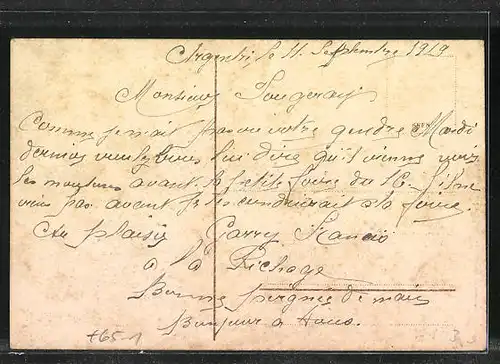 Argenti, le 11 Septembre 1919
Monsieur Fougeray
Comme je n'ait pas vu votre gendre Mardi
dernier voulez vous lui dire qu'il vienne voir
les moutons avant la petite foire du 16. S'il ne
vien pas avant je les conduirait a la foire.
Au plaisir Garry Francis
a la Pichage
Bonne poignée de main
Bonjour a tous.
+65-1